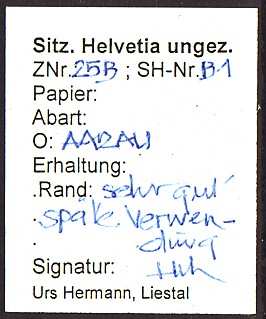 Sitz. Helvetia ungez.
ZNr. 25B ; SH-Nr. B1
Papier:
Abart:
O: AARAU
Erhaltung:
.Rand: sehr gut
. späte Verwen-
. dung
Signatur: HUh
Urs Hermann, Liestal